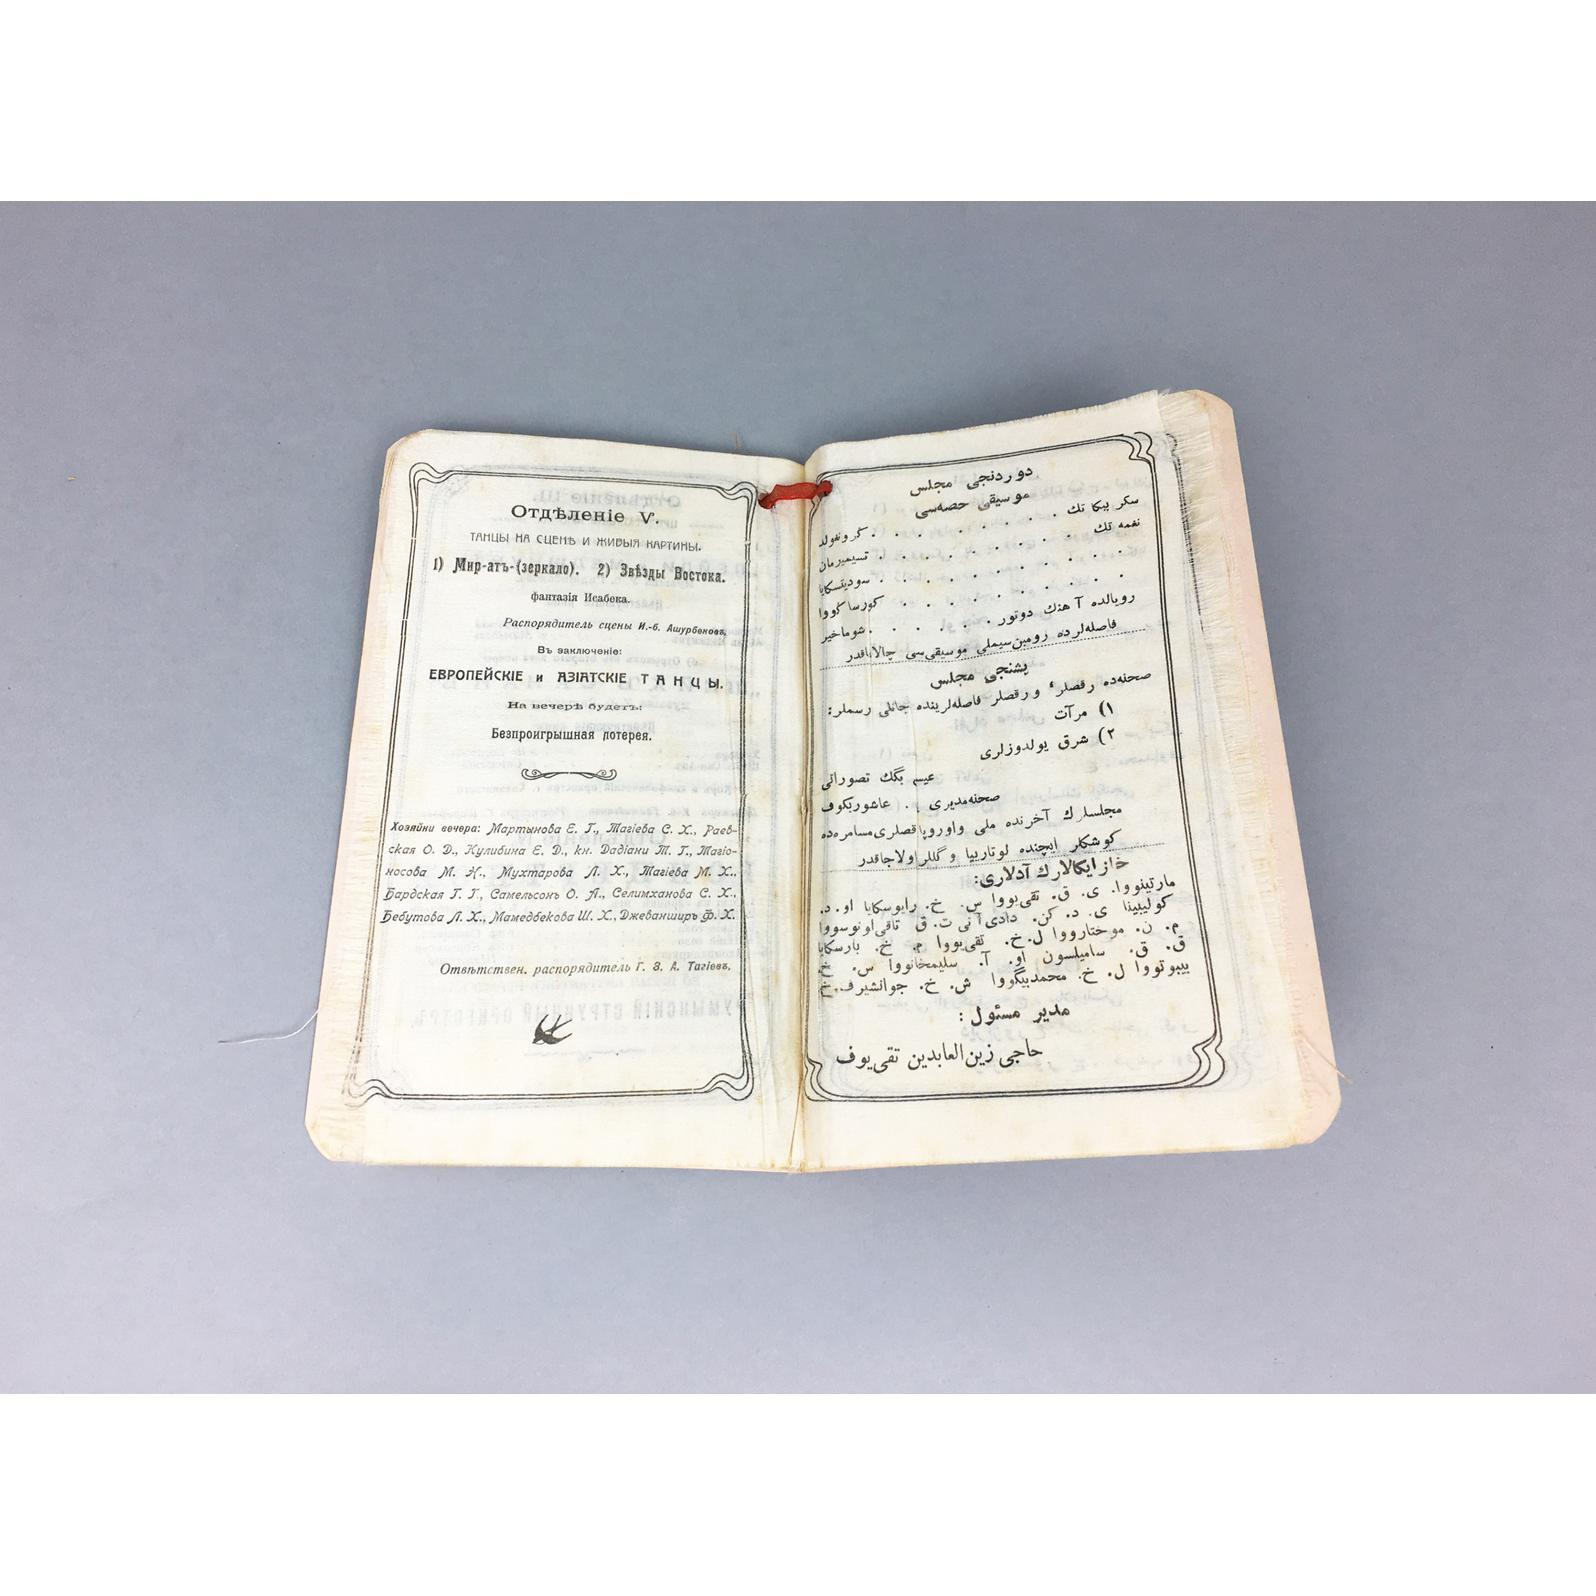 Отдѣленіе V.
ТАНЦЫ НА СЦЕНѢ И ЖИВЫЯ КАРТИНЫ.
1) Мир-атъ-(зеркало). 2) Звѣзды Востока.
фантазія Исабека.
Распорядитель сцены И.-б. Ашурбековъ.
Въ заключеніе:
ЕВРОПЕЙСКІЕ и АЗІАТСКІЕ ТАНЦЫ.
На вечерѣ будетъ:
Безпроигрышная лотерея.
Хозяйки вечера: Мартынова Е. Г., Тагіева С. Х., Раев-
ская О. Д., Кулибина Е. Д., кн. Дадіани Т. Г., Тагіо-
носова М. Н., Мухтарова Л. Х., Тагіева М. Х.,
Бардская Г. Г., Самельсонъ О. А., Селимханова С. Х.,
Бебутова Л. Х., Мамедбекова Ш. Х., Джеванширъ Ф. Х.
Отвѣтствен. распорядитель Г. З. А. Тагіевъ.
دوردنجی مجلس
موسیقی حصه‌سی
سکر یپکا تك . . . . . . . . گرونفولد
نغمه تك . . . . . . . . تسیمیرمان
. . . . . . . . سودیتسکایا
. . . . . . . . کورساکووا
رویالده آهنك دوتور . . . . . . شوماخیر
فاصله‌لرده رومین سیملی موسیقی‌سی چالاناقدر
یشنجی مجلس
صحنه‌ده رقصلر، ورقصلر فاصله‌لرینده جانلی رسملر:
۱) مرآت
۲) شرق یولدوزلری
عیسی بگك تصوراتی
صحنه‌مدیری . . عاشوربکوف
مجلسلرك آخرنده ملی واوروپا رقصلری مسامره‌ده
کوشکلر ایچنده لوتارییا وگللر اولاجاقدر
خازایکالارك آدلاری:
مارتینووا. ی. ق. تقی‌یووا س. خ. رایوسکایا او. د.
کولیبینا ی. د. کن. دادی‌آنی ت. ق تاقی‌اونوسووا
م. ن. موختارووا ل. خ. تقی‌یووا م. خ. بارسکایا
ق. ق. سامیلسون او. آ. سلیمخانووا س. خ.
بیبوتووا ل. خ. محمدبیگووا ش. خ. جوانشیرف. خ
مدیر مسئول:
حاجی زین العابدین تقی‌یوف